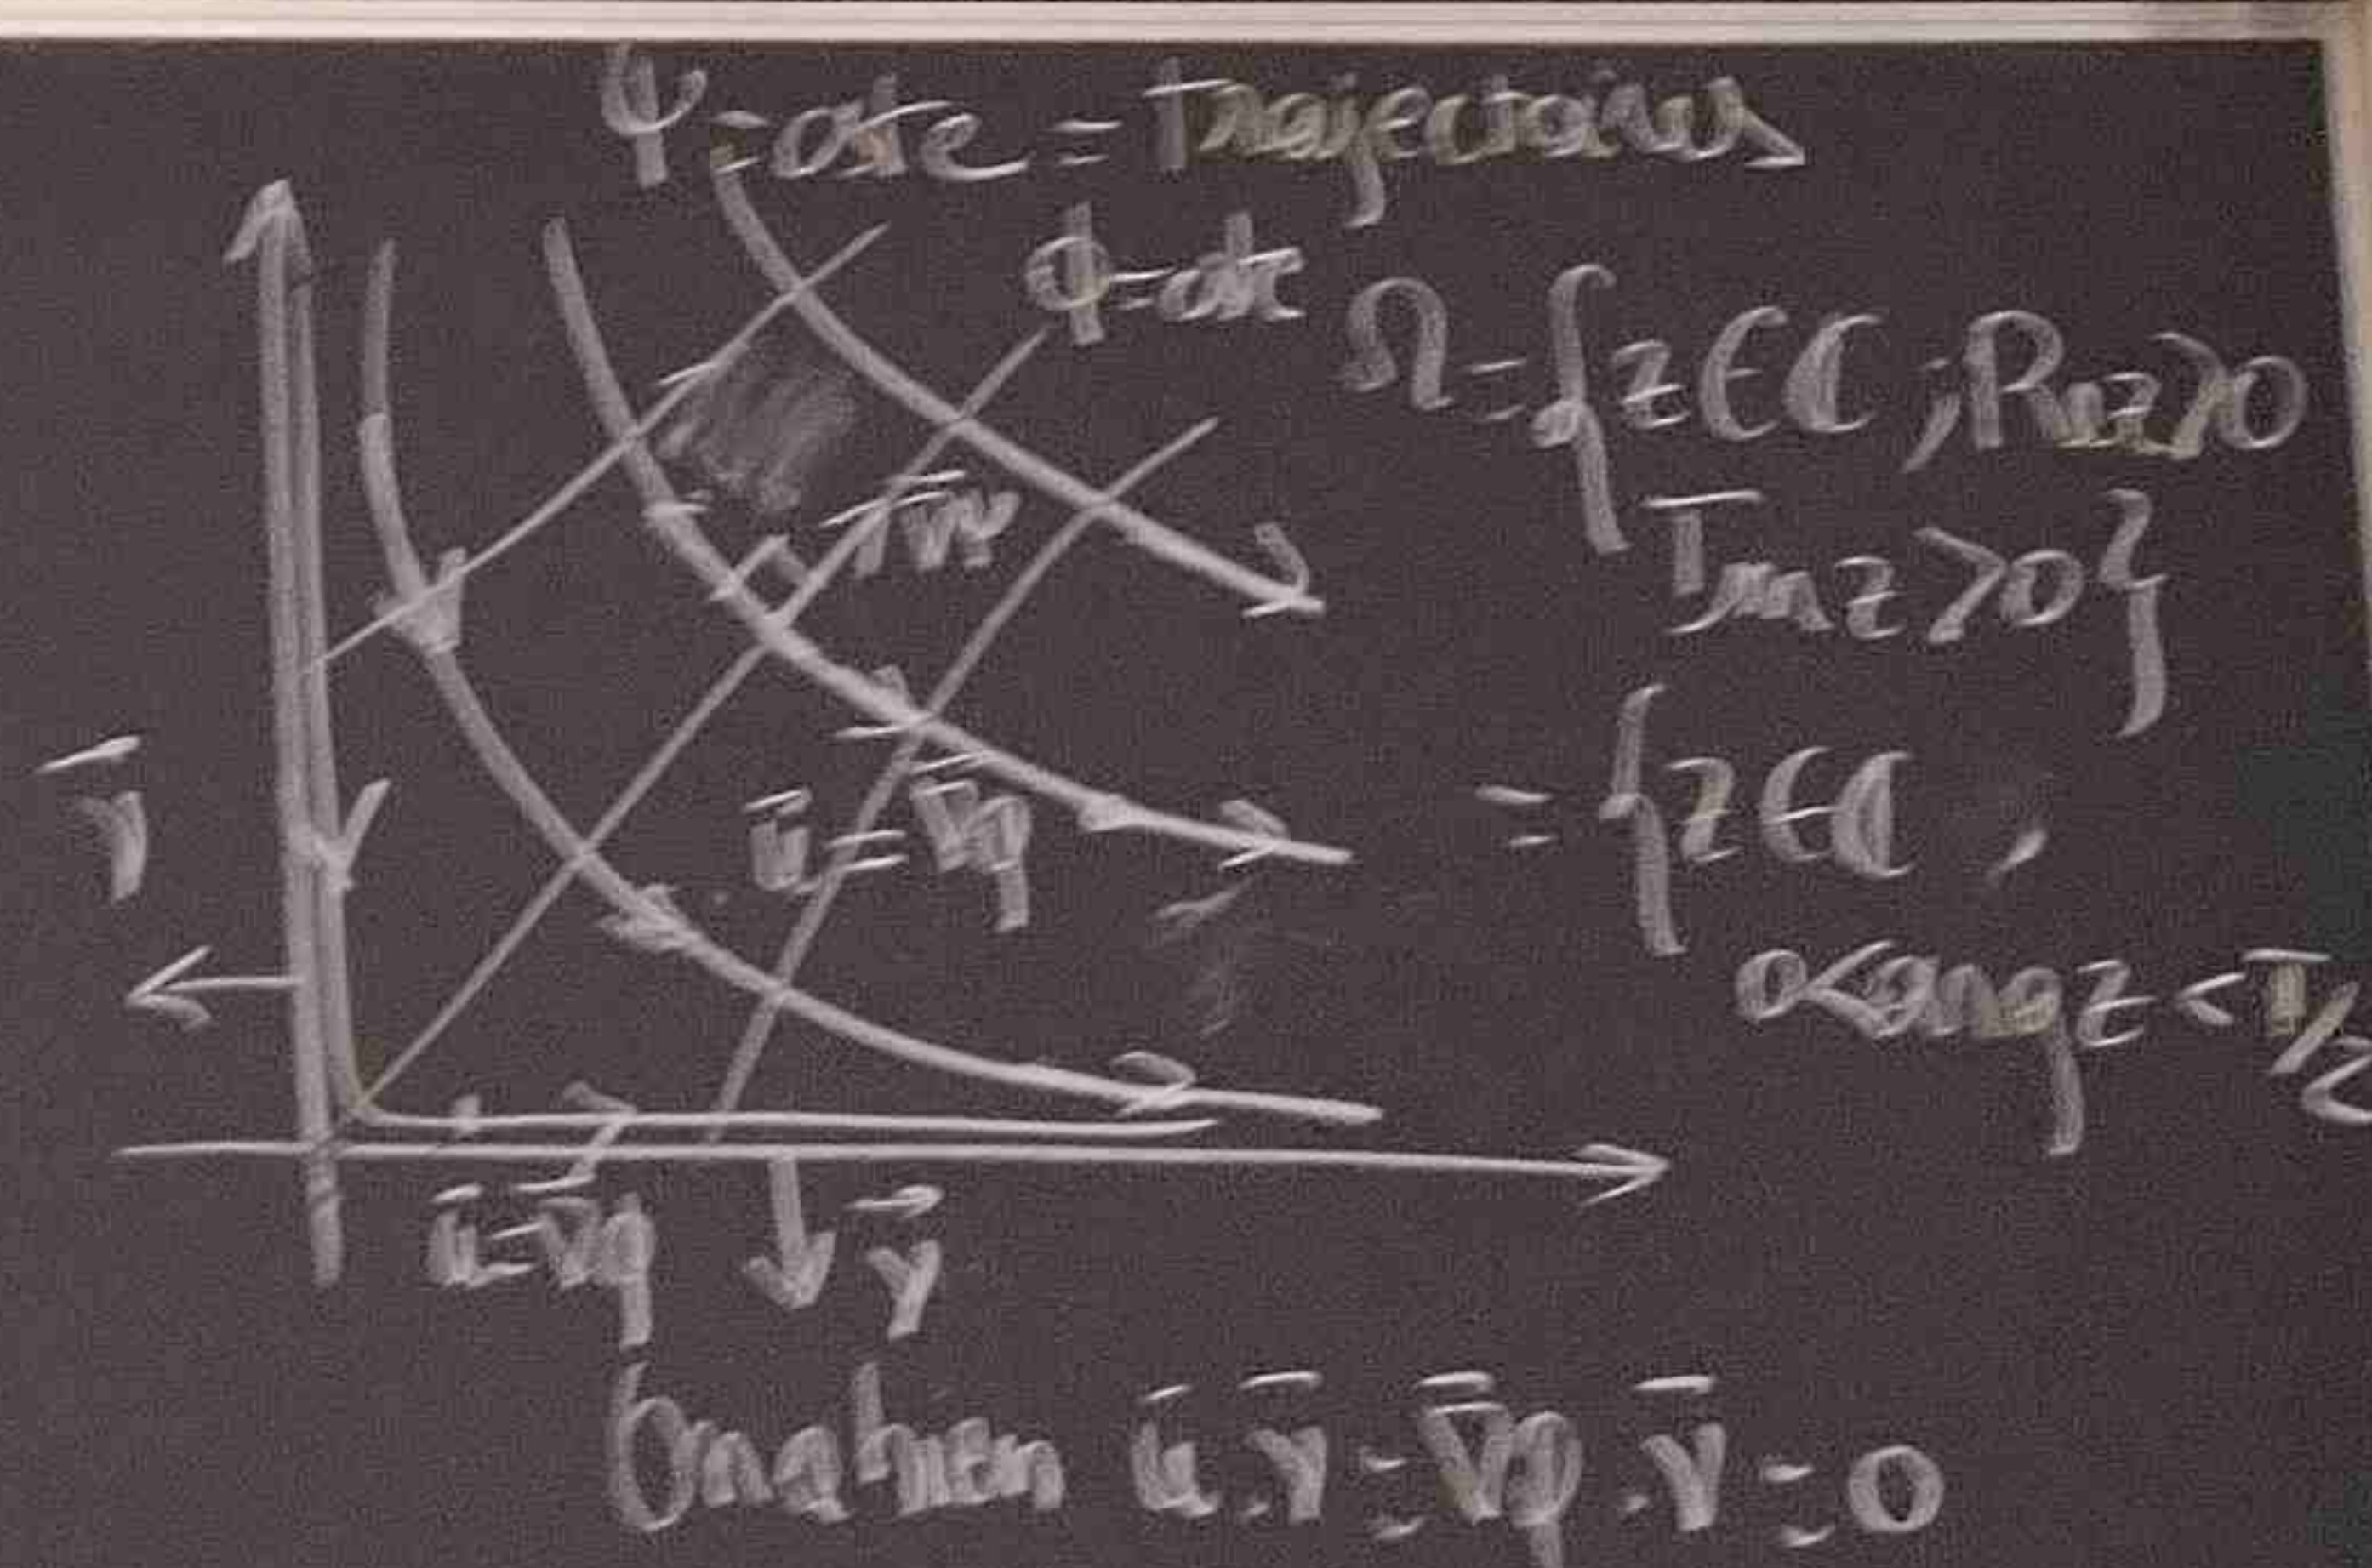 ψ=cte = Trajectoires
ϕ=cte
Ω={z∈ℂ ; Re z>0
Im z>0}
∇ψ
={z∈ℂ,
0<arg z<π/2
ū=∇φ
ū=∇φ
On a bien ū.ν̄=∇̄φ.ν̄=0